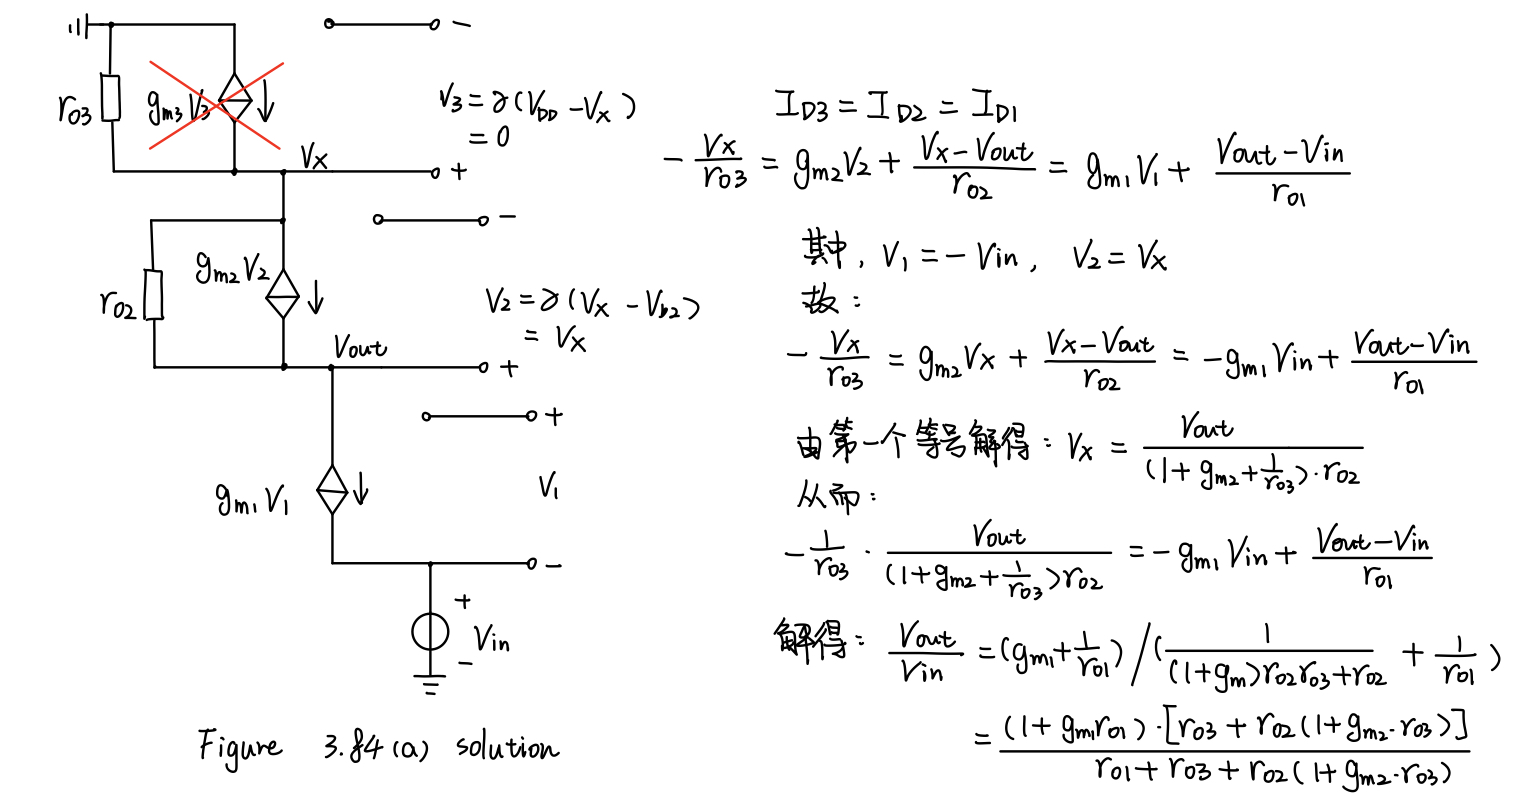 r03
gm3 V3
V3 = γ(VDD - Vx)
= 0
Vx
+
-
r02
gm2 V2
V2 = γ(Vx - Vb2)
= Vx
Vout
+
-
+
gm1 V1
V1
-
+
Vin
-
Figure 3.84 (a) solution
ID3 = ID2 = ID1
- Vx/r03 = gm2V2 + (Vx - Vout)/r02 = gm1V1 + (Vout - Vin)/r01
其中, V1 = - Vin, V2 = Vx
故:
- Vx/r03 = gm2Vx + (Vx - Vout)/r02 = -gm1Vin + (Vout - Vin)/r01
由第一个等号解得: Vx = Vout/((1 + gm2 + 1/r03)·r02)
从而:
- 1/r03 · Vout/((1 + gm2 + 1/r03)r02) = - gm1 Vin + (Vout - Vin)/r01
解得: Vout/Vin = (gm1 + 1/r01) / (1/((1+gm)r02r03 + r02) + 1/r01)
= (1 + gm1r01)·[r03 + r02(1 + gm2·r03)]/(r01 + r03 + r02(1 + gm2·r03))